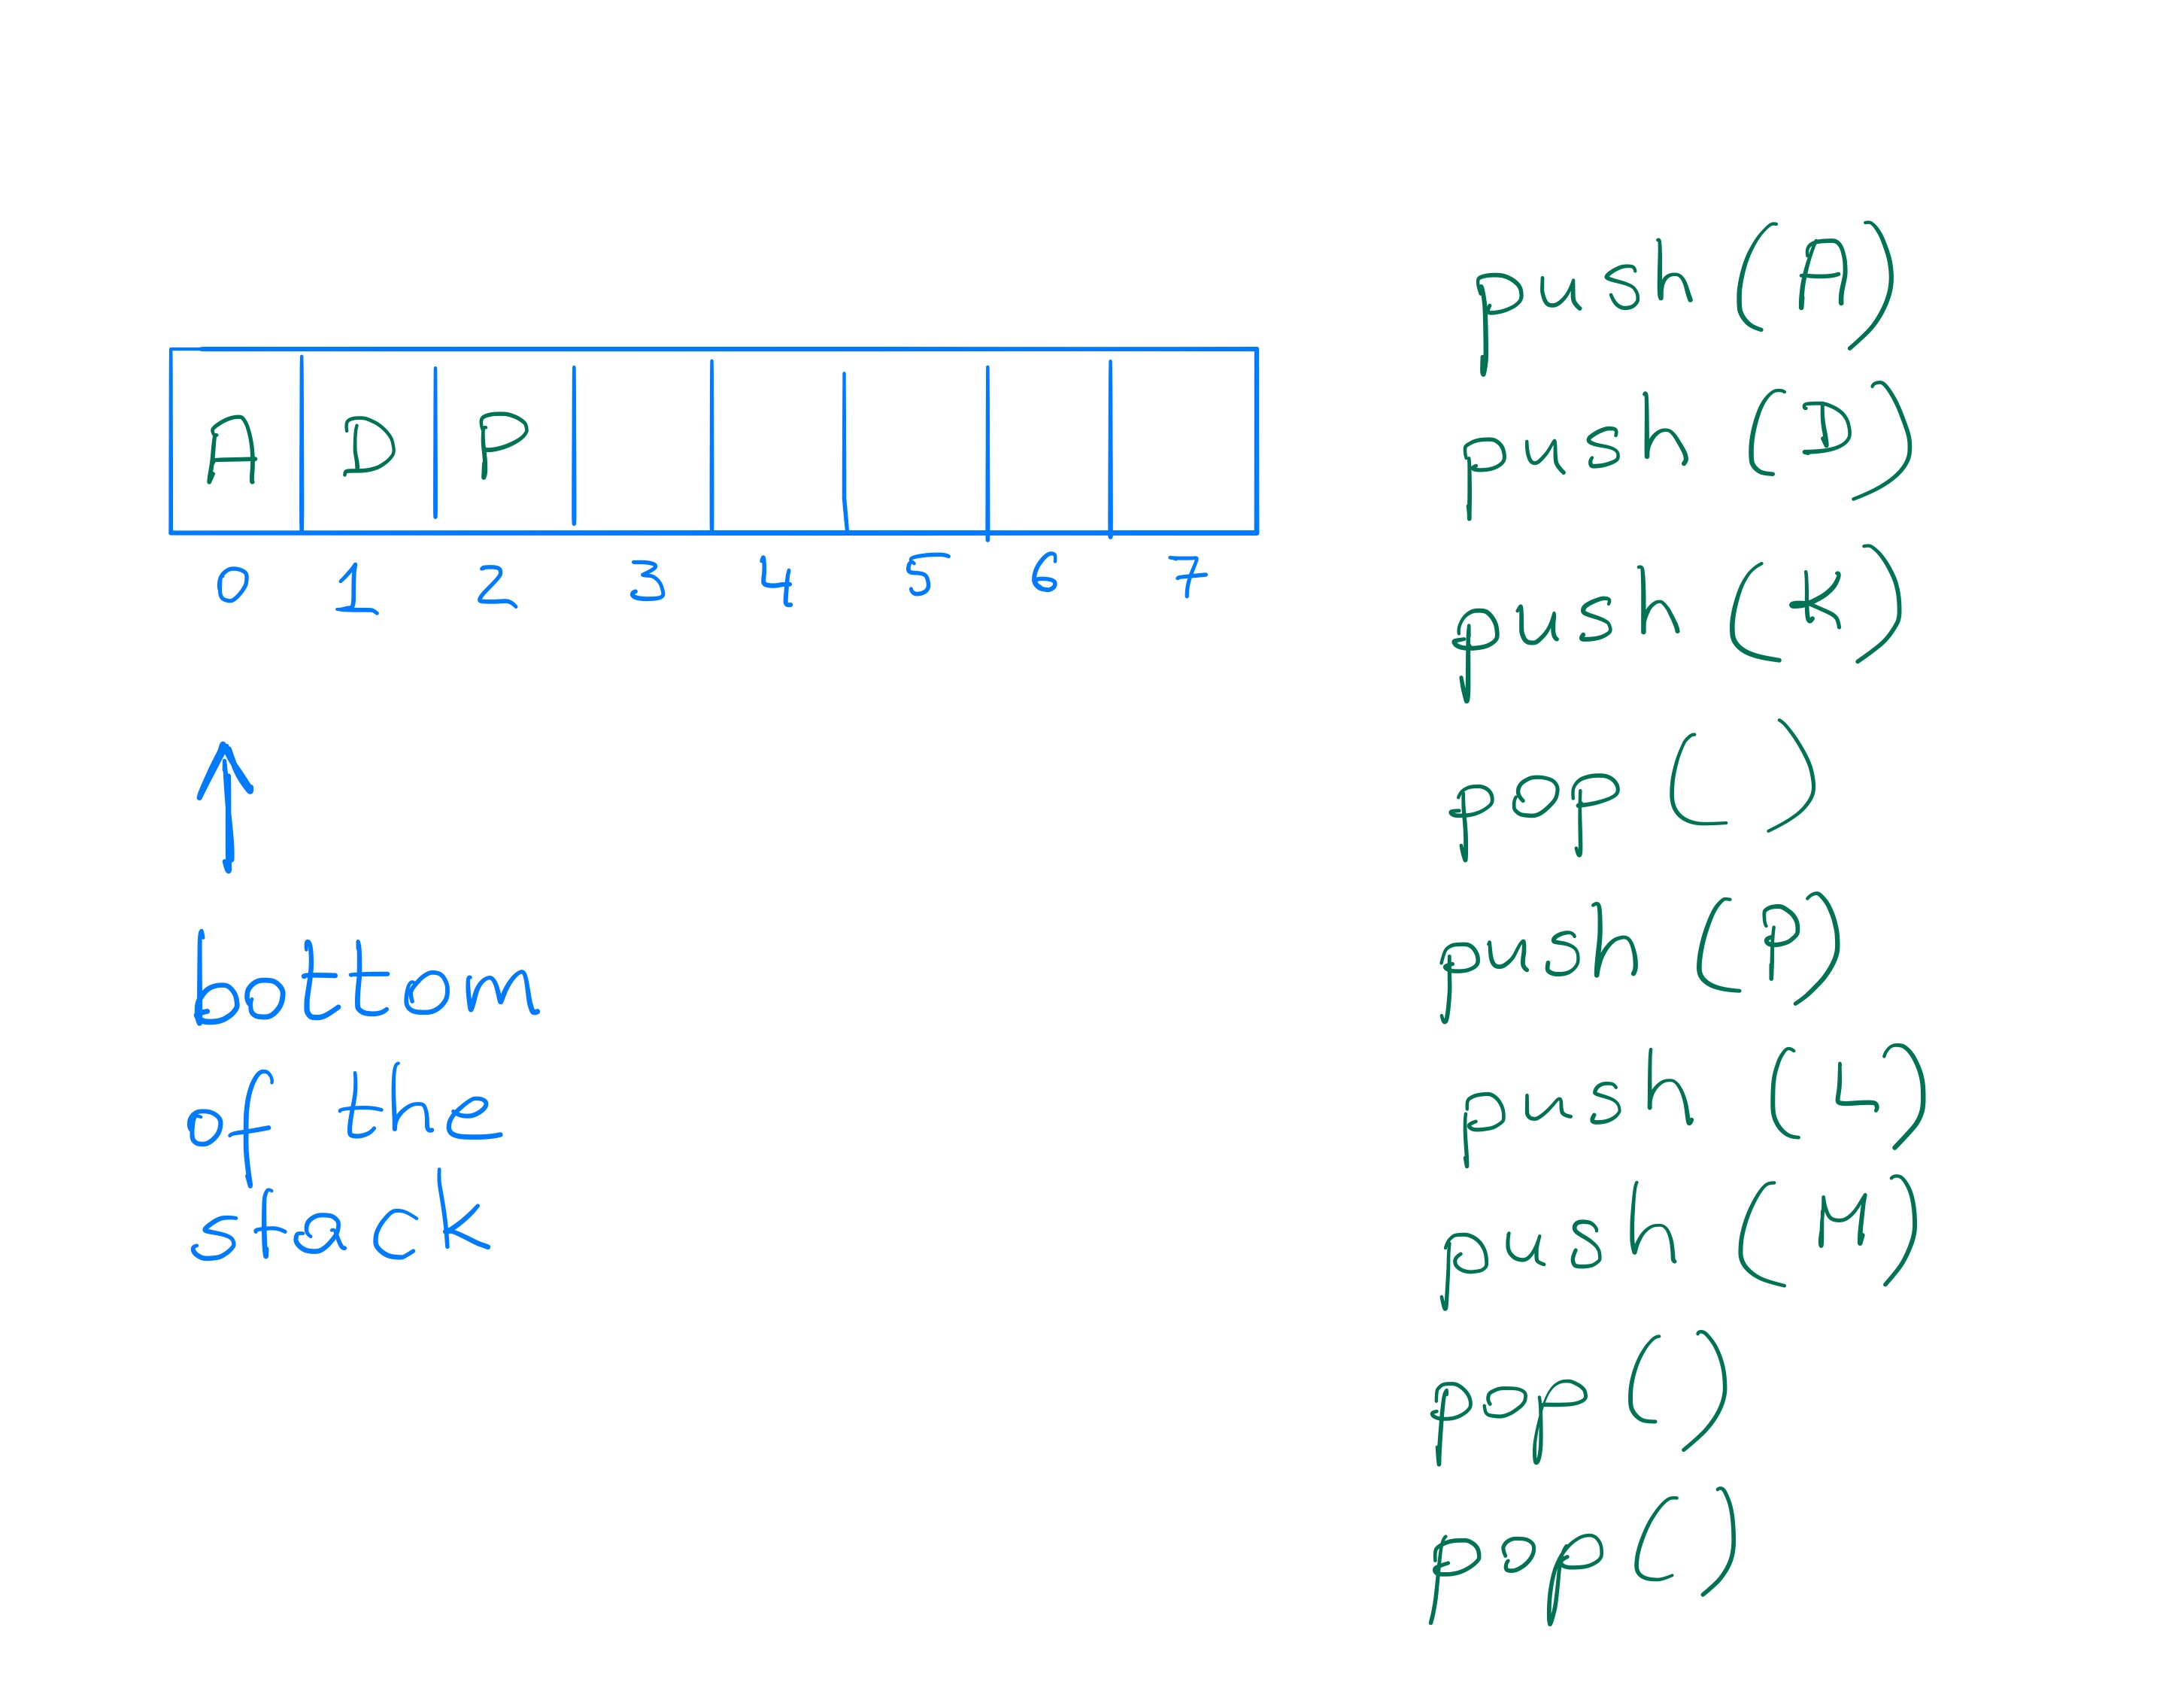 A D P
0 1 2 3 4 5 6 7
bottom
of the
stack
push (A)
push (D)
push (K)
pop ( )
push (P)
push (L)
push (M)
pop ( )
pop ( )